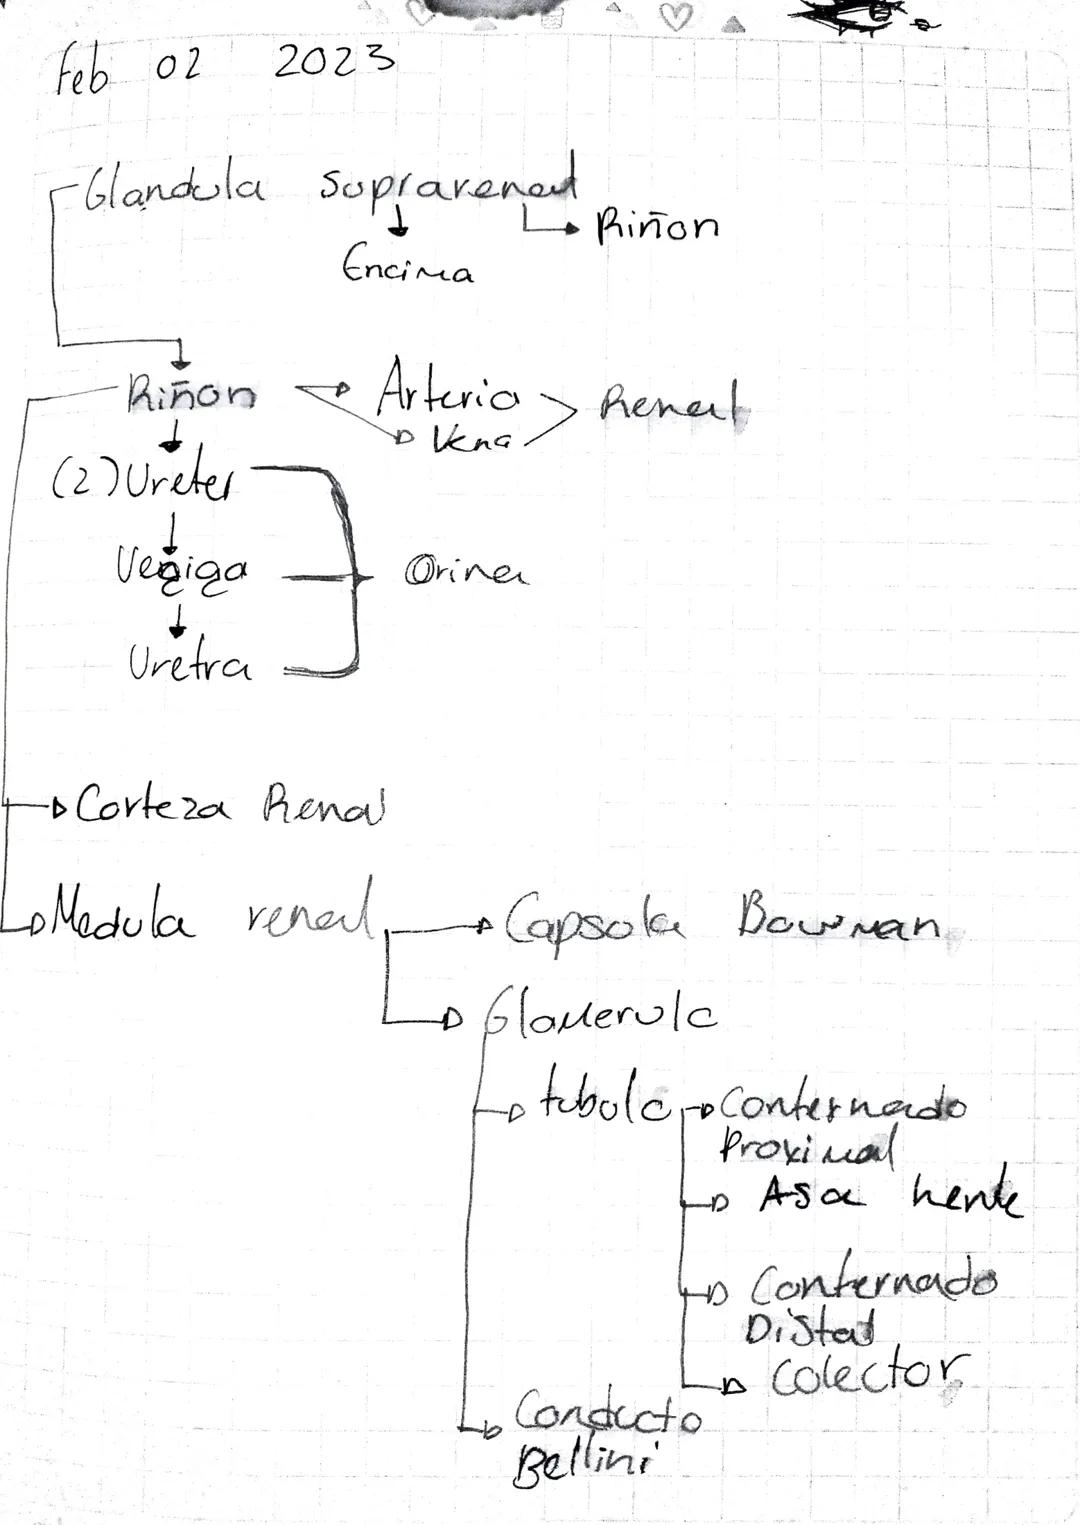 Feb 02 2023
Glandula Suprarenal
Riñon
Encima
Riñon
Arteria
Vena
Renal
(2) Ureter
Vegiga
Orina
Uretra
Corteza Renal
Medula renal
Capsola Bowman
Glomerulo
tubulo
Conternado
Proximal
Asa henle
Conternado
Distal
Colector
Conducto
Bellini